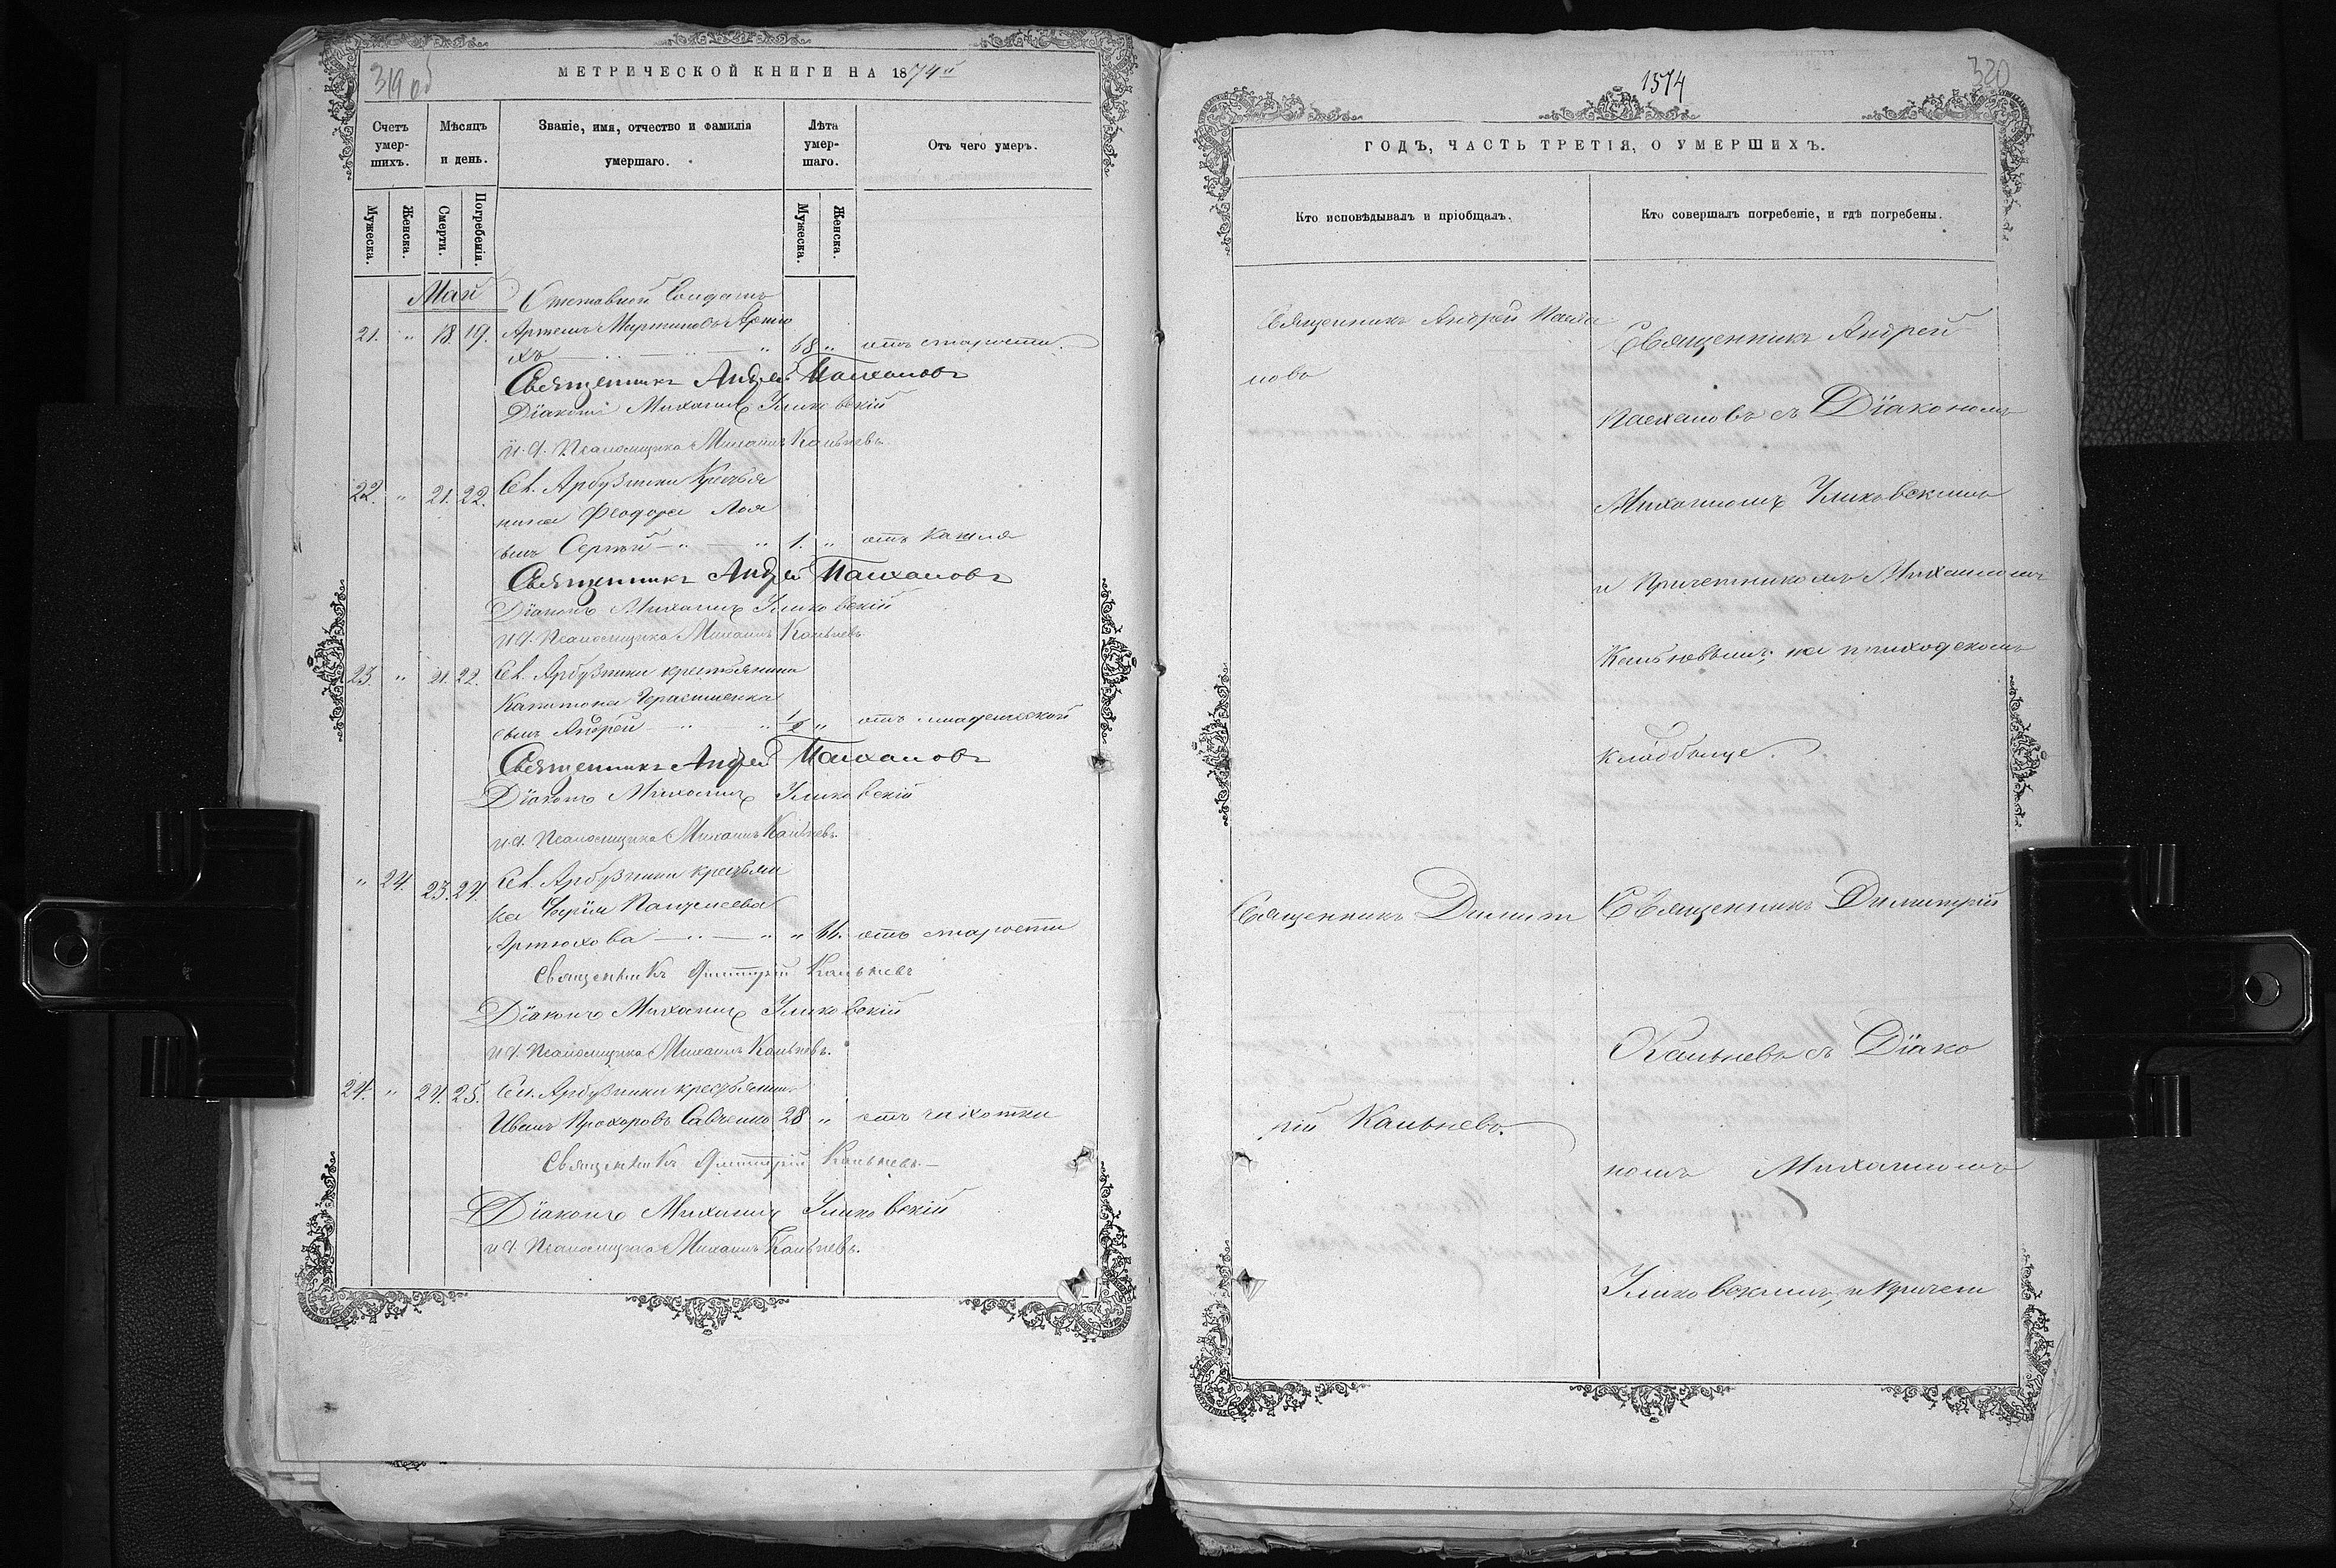 319 об
МЕТРИЧЕСКОЙ КНИГИ НА 1874й
Счетъ умер-шихъ.
Мѣсяцъ и день.
Званіе, имя, отчество и фамилія умершаго.
Лѣта умер-шаго.
Отъ чего умеръ.
Мужеска.
Женска.
Смерти.
Погребенія.
Мужеска.
Женска.
Май
Отставной Солдатъ
21. " 18. 19. Артемъ Мартиновъ Артю
хъ 68 " отъ старости.
Священникъ Андрей
Діаконъ Михаилъ Уликовскій
И. д. Псаломщика Михаилъ Кальневъ.
22. " 21. 22. Сел. Арбузинки Крестья
нина Феодора
сынъ Сергѣй 1. " отъ кашля
Священникъ Андрей
Діаконъ Михаилъ Уликовскій
И. д. Псаломщика Михаилъ Кальневъ.
23. " 21. 22. Сел. Арбузинки крестьянина
Капитона Герасименка
сынъ Андрей 1/2 " отъ младенческой
Священникъ Андрей
Діаконъ Михаилъ Уликовскій
и. д. Псаломщика Михаилъ Кальневъ.
" 24. 23. 24. Сел. Арбузинки крестьян
ка
Артюхова " 66. отъ старости
Священникъ Димитрій Кальневъ
Діаконъ Михаилъ Уликовскій
и. д. Псаломщика Михаилъ Кальневъ.
24. " 24. 25. Сел. Арбузинки крестьянинъ
Иванъ Прохоровъ Савченко 28 " отъ чахотки
Священникъ Димитрій Кальневъ.
Діаконъ Михаилъ Уликовскій
и. д. Псаломщика Михаилъ Кальневъ.
1574
320
ГОДЪ, ЧАСТЬ ТРЕТІЯ, О УМЕРШИХЪ.
Кто исповѣдывалъ и пріобщалъ.
Кто совершалъ погребеніе, и гдѣ погребены.
Священникъ Андрей
новъ
Священникъ Андрей
съ Діакономъ
Михаиломъ Уликовскимъ
и Причетникомъ Михаиломъ
Кальневымъ, на приходскомъ
кладбище.
Священникъ Димит
рій Кальневъ.
Священникъ Димитрій
Кальневъ съ Діако
номъ Михаиломъ
Уликовскимъ, и Причетн